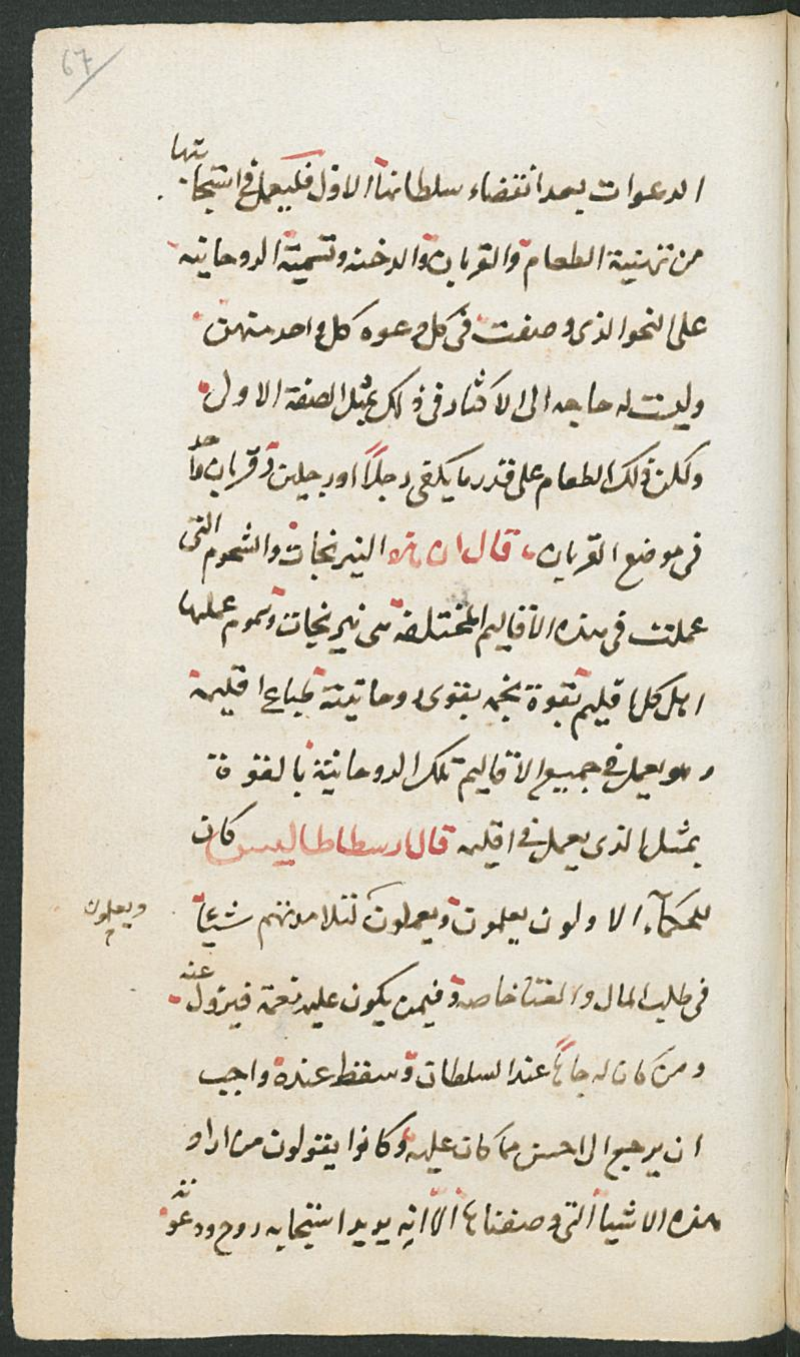 67
الدعوات بعد انقضاء سلطانها الاول فليعمل فى استجابتها
من تهنية الطعام والقربان والدخنه وتسمية الروحانيه
على النحو الذى وصفت فى كل دعوه كل واحد منهن
وليست له حاجه الى الاكثار فى ذلك مثل الصنفة الاول
ولكن ذلك الطعام على قدر ما يكفى رجلاً او رجلين وقربان واحد
فى موضع القربان قال ان هذه النيرنجات والسموم التى
عملت فى هذه الاقاليم المختلفه هى نيرنجات وسموم عملها
اهل كل اقليم بقوة نجمه بقوى روحانيته طباع اقليمه
وهو يعمل فى جميع الاقاليم تلك الروحانية بالقوة
بمثل الذى يعمل فى اقليمه قال ارسطاطاليس كان
للحكمآء الاولون يعلمون ويعملون لتلامذتهم شيئاً
ويعملون
فى طلب المال والغنا خاصه وفيمن يكون عليه نعمة فيزول عنه
ومن كان له جاهاً عند السلطان وسقط عنده واحب
ان يرجع الى احسن مما كان عليه وكانوا يقولون من اراد
هذه الاشيا التى وصفناها الا انه يريد استجابه روح ودعوته